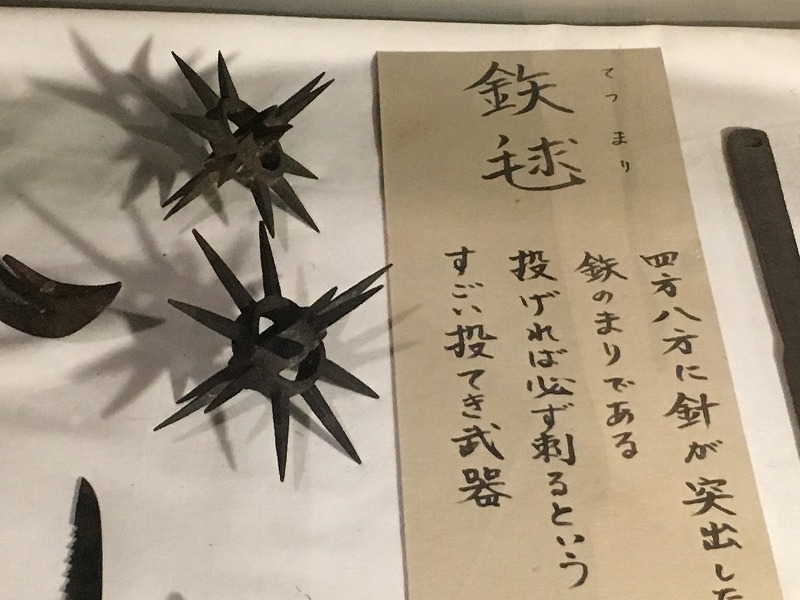 鉄毬
てつまり
四方八方に針が突出した
鉄のまりである
投げれば必ず刺るという
すごい投てき武器